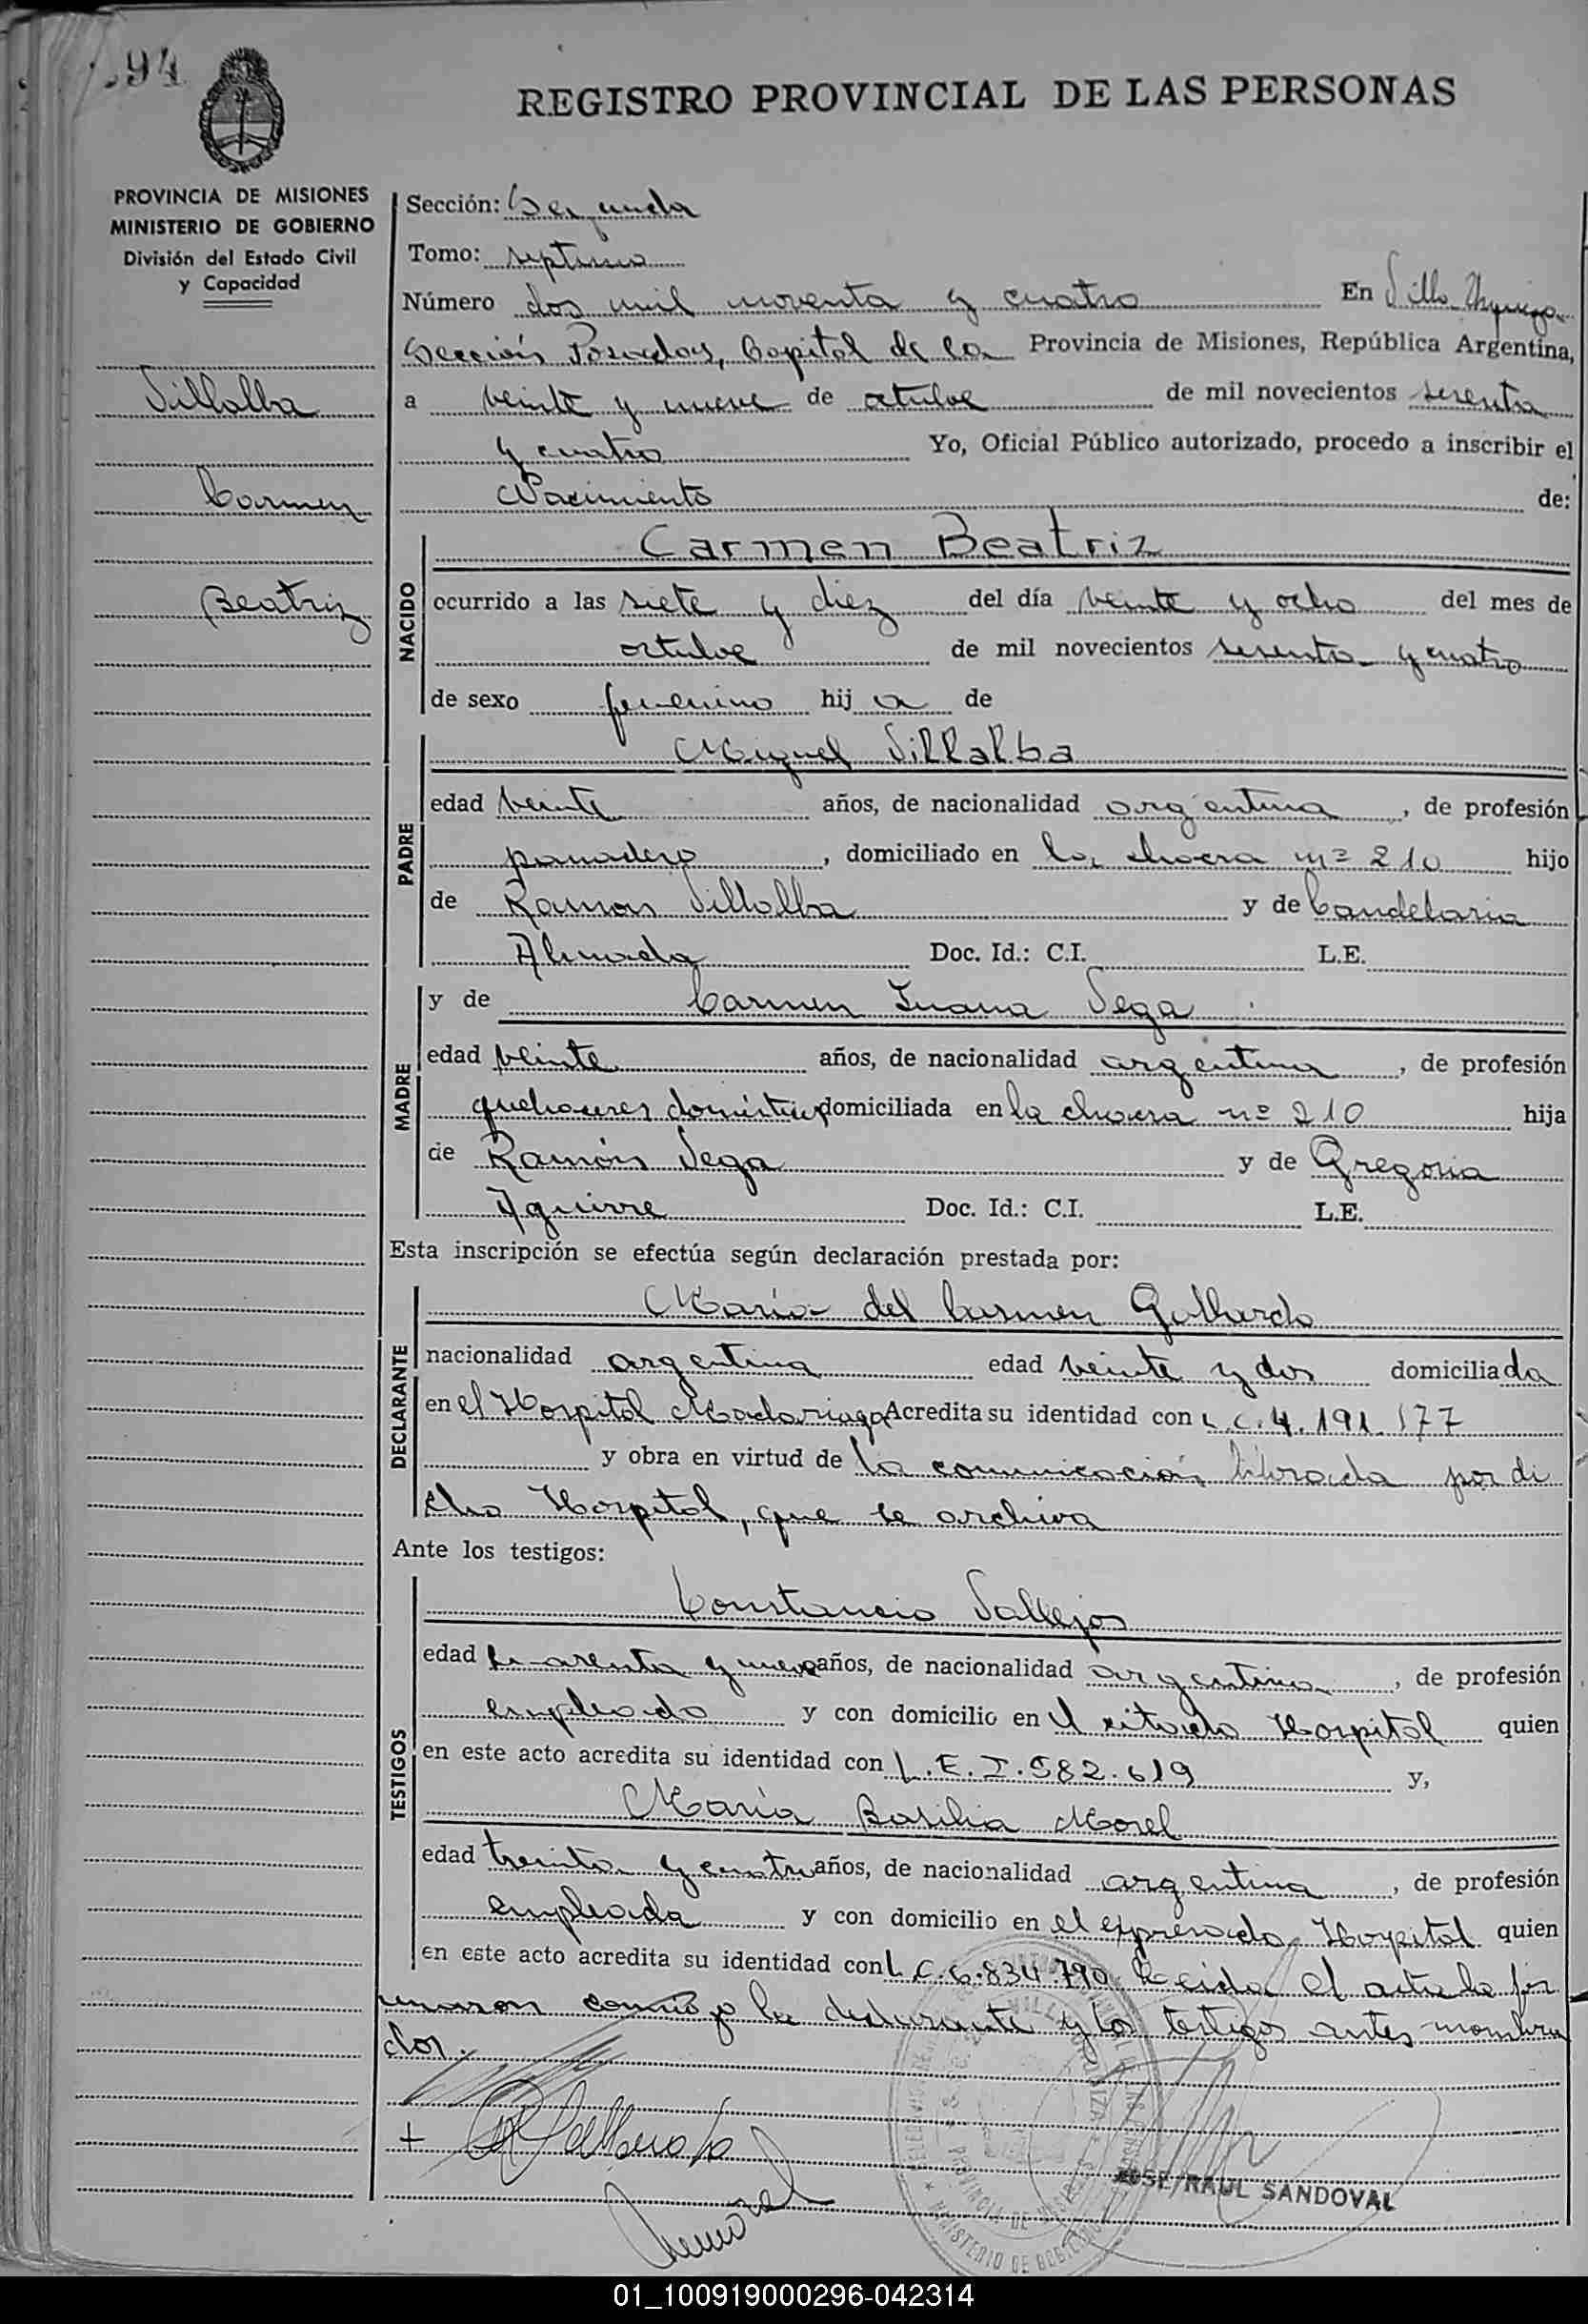 94
REGISTRO PROVINCIAL DE LAS PERSONAS
PROVINCIA DE MISIONES
MINISTERIO DE GOBIERNO
División del Estado Civil
y Capacidad
Villalba
Carmen
Beatriz
Sección: Segunda
Tomo: septimo
Número dos mil noventa y cuatro En Villa Urquiza
Sección Posadas, Capital de la Provincia de Misiones, República Argentina,
a veinte y nueve de octubre de mil novecientos sesenta
y cuatro Yo, Oficial Público autorizado, procedo a inscribir el
Nacimiento de:
NACIDO
Carmen Beatriz
ocurrido a las siete y diez del día veinte y ocho del mes de
octubre de mil novecientos sesenta y cuatro
de sexo femenino hij a de
PADRE
Miguel Villalba
edad veinte años, de nacionalidad argentina, de profesión
panadero, domiciliado en la chacra nº 210 hijo
de Ramon Villalba y de Candelaria
Almada Doc. Id.: C.I. L.E.
MADRE
y de Carmen Juana Vega
edad veinte años, de nacionalidad argentina, de profesión
quehaceres domésticos domiciliada en la chacra nº 210 hija
de Ramón Vega y de Gregoria
Aguirre Doc. Id.: C.I. L.E.
Esta inscripción se efectúa según declaración prestada por:
DECLARANTE
María del Carmen Gallardo
nacionalidad argentina edad veinte y dos domiciliada
en el Hospital Madariaga Acredita su identidad con L.C. 4.191.177
y obra en virtud de la comunicación librada por di
cho Hospital, que se archiva
Ante los testigos:
TESTIGOS
Constancio Vallejos
edad cuarenta y nueve años, de nacionalidad argentina, de profesión
empleado y con domicilio en el citado Hospital quien
en este acto acredita su identidad con L.E. I.582.619 y,
María Basilia Morel
edad treinta y cuatro años, de nacionalidad argentina, de profesión
empleada y con domicilio en el expresado Hospital quien
en este acto acredita su identidad con L C. 6.834.790 Leida el acta la fir
maron conmigo la declarante y los testigos antes nombra
dos.
JOSE RAUL SANDOVAL
01_100919000296-042314